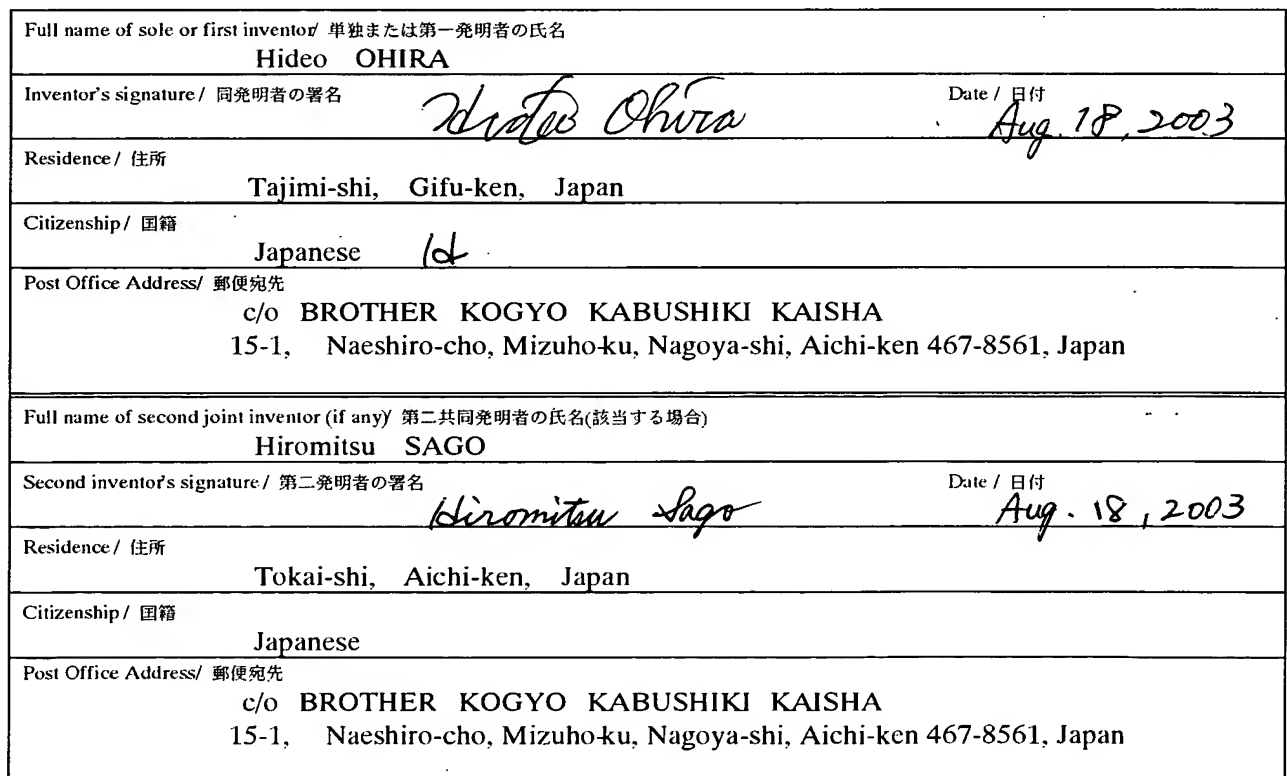 Full name of sole or first inventor/ 単独または第一発明者の氏名
Hideo OHIRA
Inventor's signature / 同発明者の署名 Hideo Ohira Date / 日付 Aug. 18, 2003
Residence / 住所
Tajimi-shi, Gifu-ken, Japan
Citizenship / 国籍
Japanese
Post Office Address/ 郵便宛先
c/o BROTHER KOGYO KABUSHIKI KAISHA
15-1, Naeshiro-cho, Mizuho-ku, Nagoya-shi, Aichi-ken 467-8561, Japan
Full name of second joint inventor (if any)/ 第二共同発明者の氏名(該当する場合)
Hiromitsu SAGO
Second inventor's signature / 第二発明者の署名 Hiromitsu Sago Date / 日付 Aug. 18, 2003
Residence / 住所
Tokai-shi, Aichi-ken, Japan
Citizenship / 国籍
Japanese
Post Office Address/ 郵便宛先
c/o BROTHER KOGYO KABUSHIKI KAISHA
15-1, Naeshiro-cho, Mizuho-ku, Nagoya-shi, Aichi-ken 467-8561, Japan